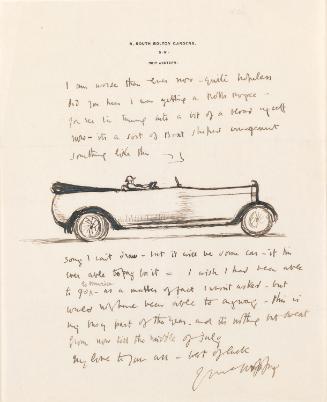 11, SOUTH BOLTON GARDENS,
S.W.
I am worse than ever now - quite hopeless
Did you hear I was getting a Rolls Royce -
for we are turning into a bit of a blood myself
now - its a sort of Boat shaped arrangement
something like this
sorry I can't draw - but it will be some car - if I'm
ever able to pay for it - I wish I had been able
to America
to go - as a matter of fact I wasn't asked - but
would not have been able to anyway - this is
my busy part of the year and its nothing but sweat
from now till the middle of July
My love to you all - best of luck